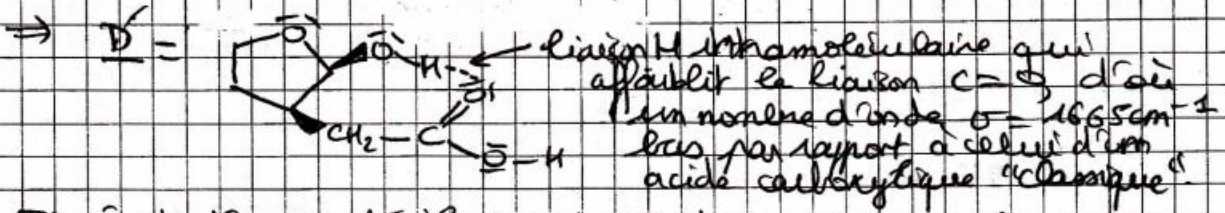 ⇒ D' = O O H liaison H intramoléculaire qui
affaiblit la liaison C=O, d'où
un nombre d'onde σ = 1665cm⁻¹
bas par rapport à celui d'un
acide carboxylique "classique".
CH₂-C O O-H